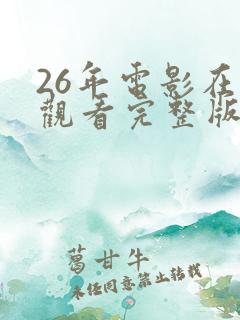 26年電影在
觀看完整版
葛甘牛
未经同意禁止转载